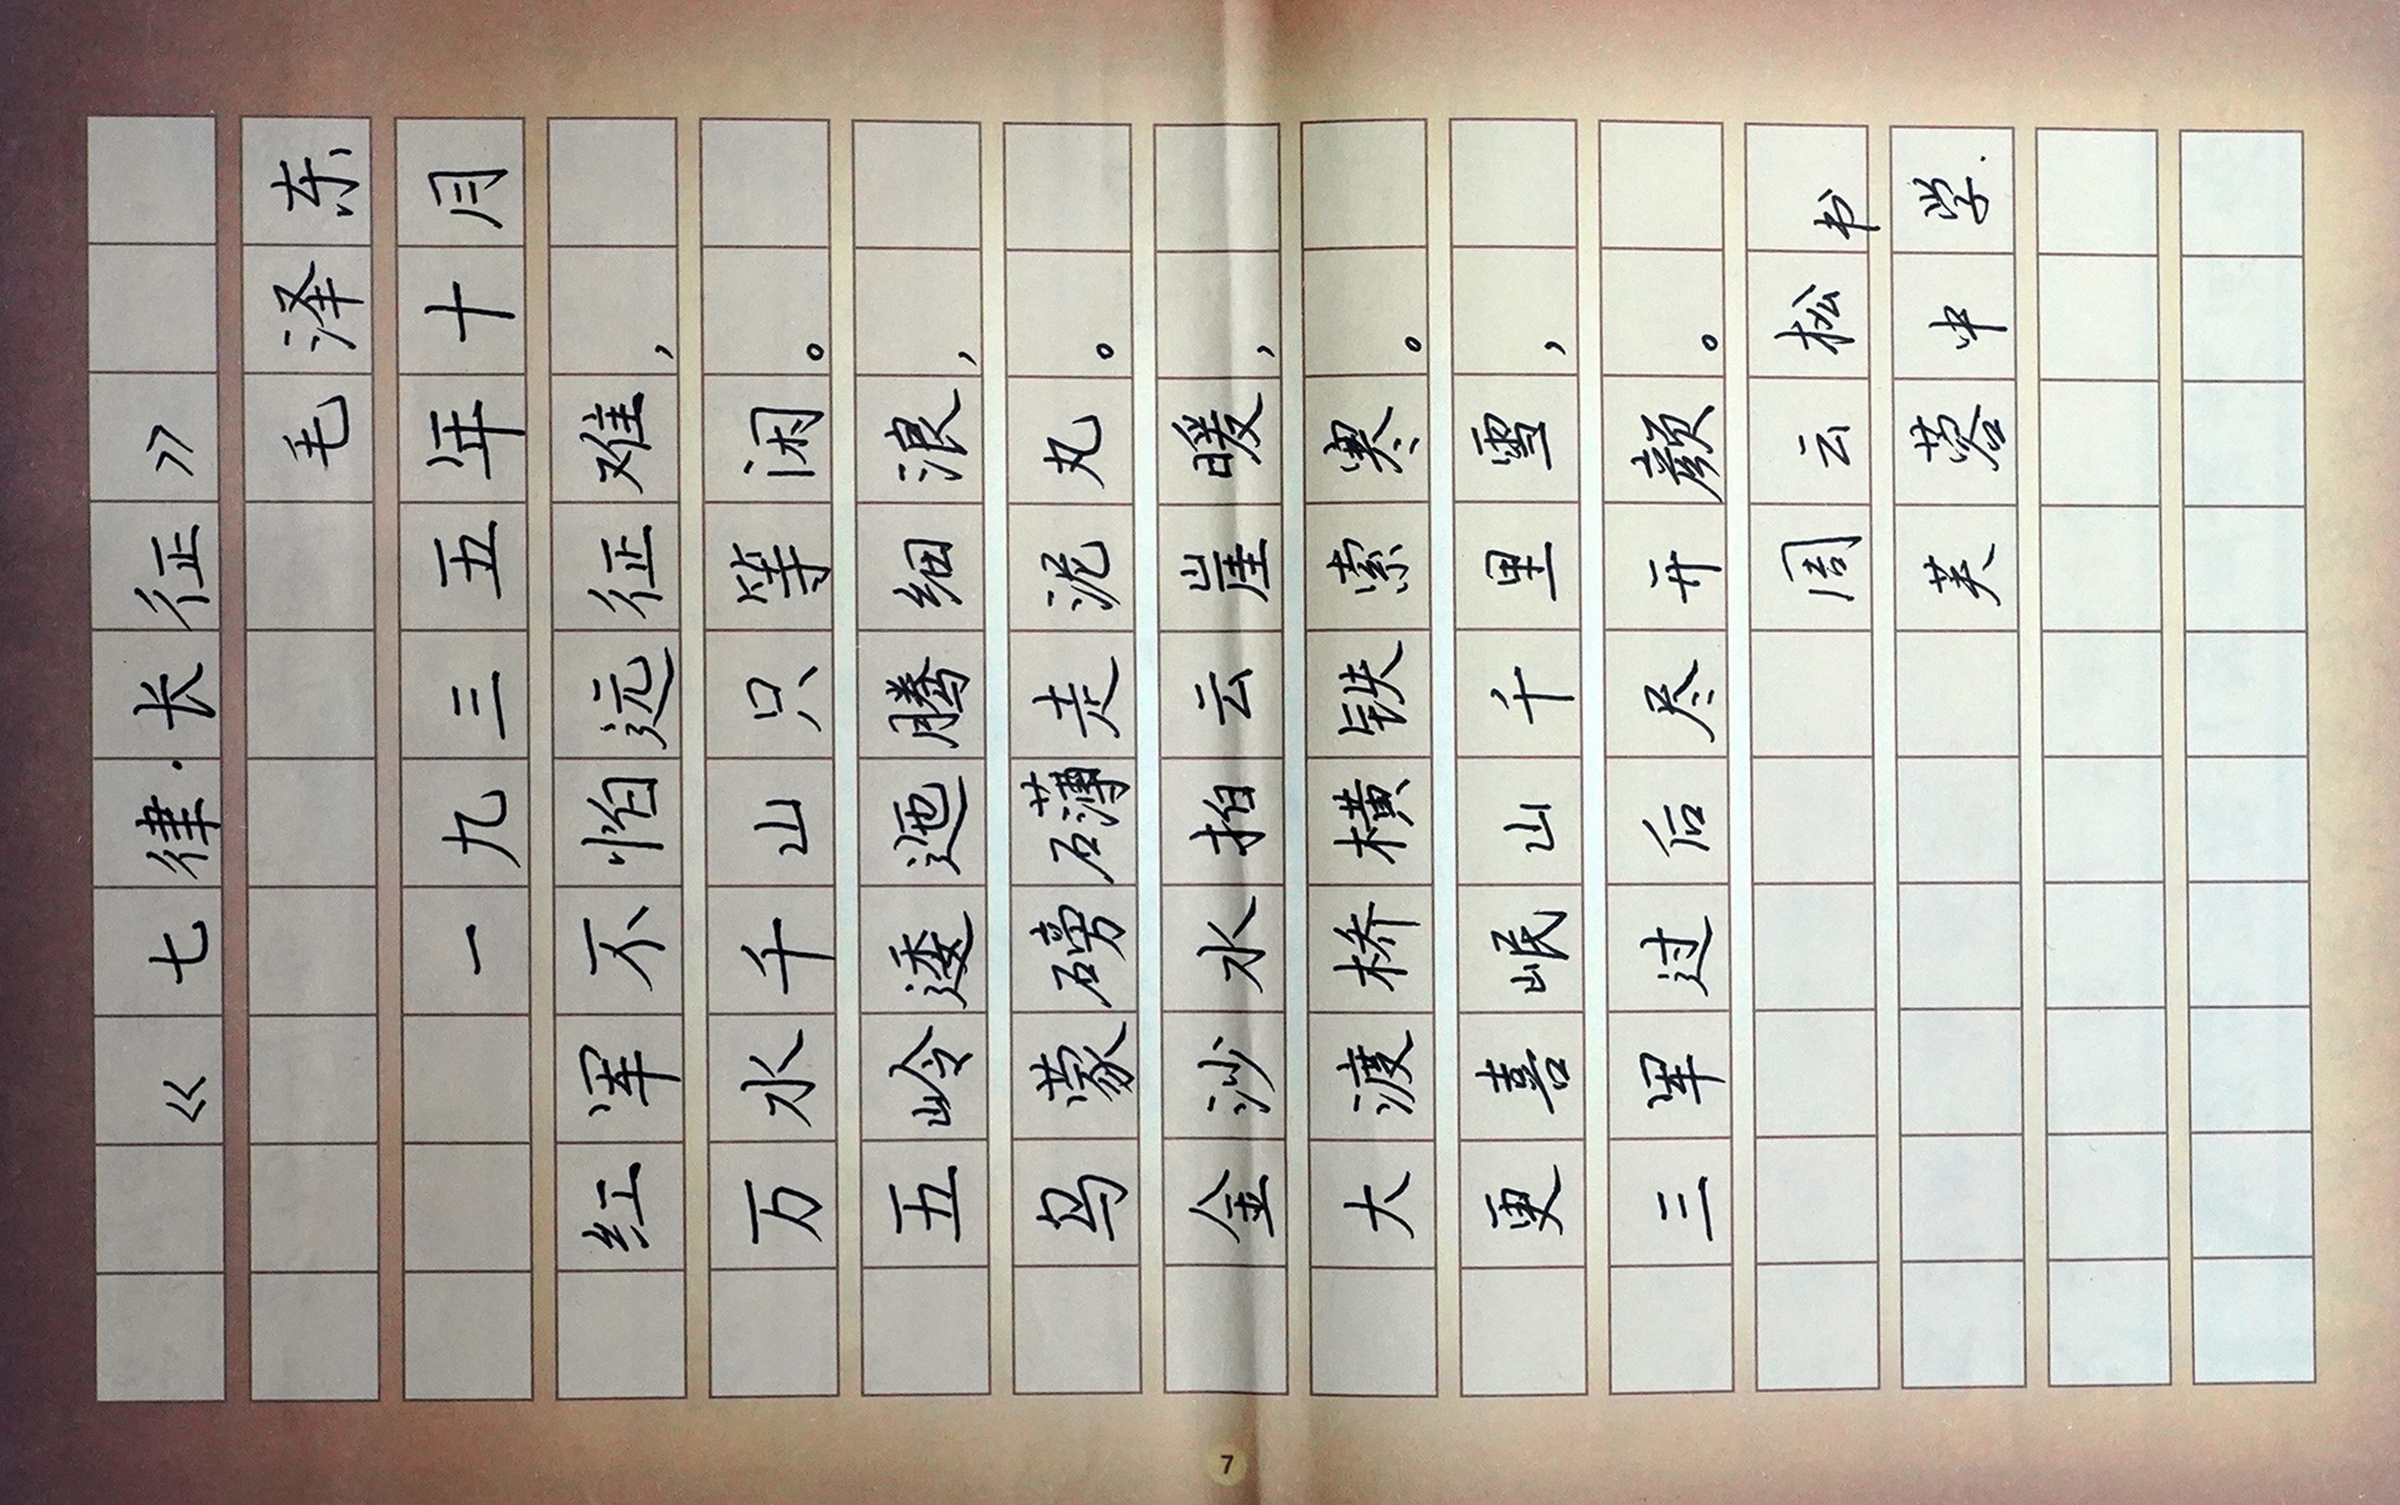 《七律·长征》
毛泽东
一九三五年十月
红军不怕远征难，
万水千山只等闲。
五岭逶迤腾细浪，
乌蒙磅礴走泥丸。
金沙水拍云崖暖，
大渡桥横铁索寒。
更喜岷山千里雪，
三军过后尽开颜。
周云松书
芙蓉中学.
7